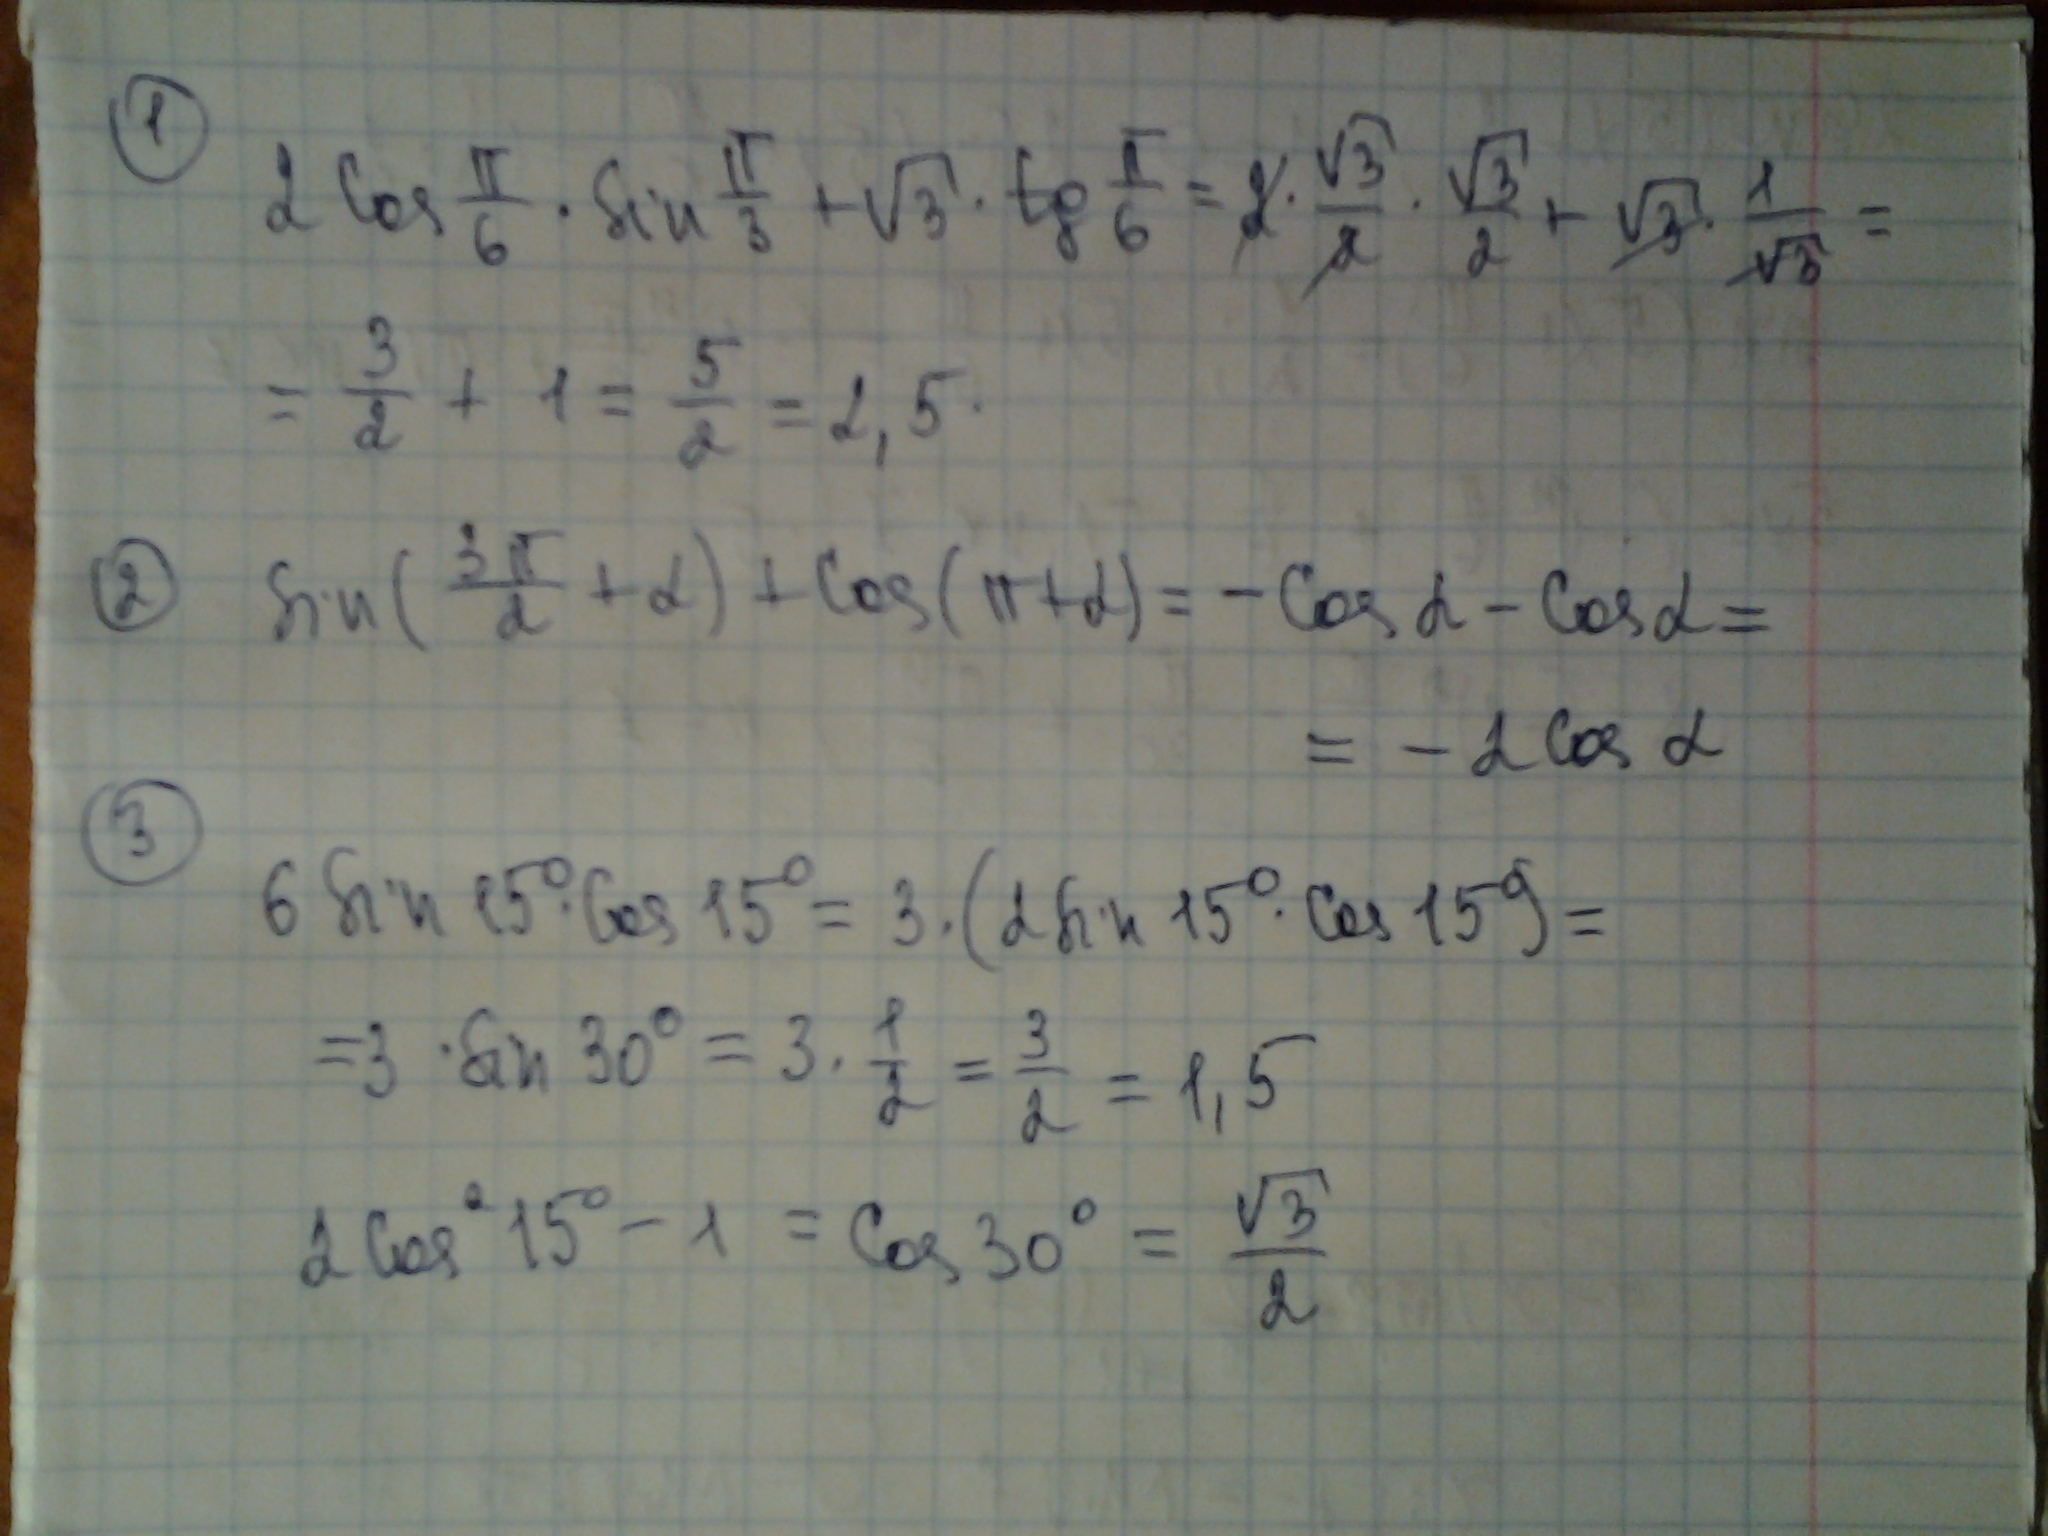 ① 2 cos π/6 · sin π/3 + √3 · tg π/6 = 2 · √3/2 · √3/2 + √3 · 1/√3 =
= 3/2 + 1 = 5/2 = 2,5.
② sin(3π/2 + α) + cos(π+α) = - cos α - cos α =
= - 2 cos α
③ 6 sin 15° · cos 15° = 3 · (2 sin 15° · cos 15°) =
= 3 · sin 30° = 3 · 1/2 = 3/2 = 1,5
2 cos² 15° - 1 = cos 30° = √3/2